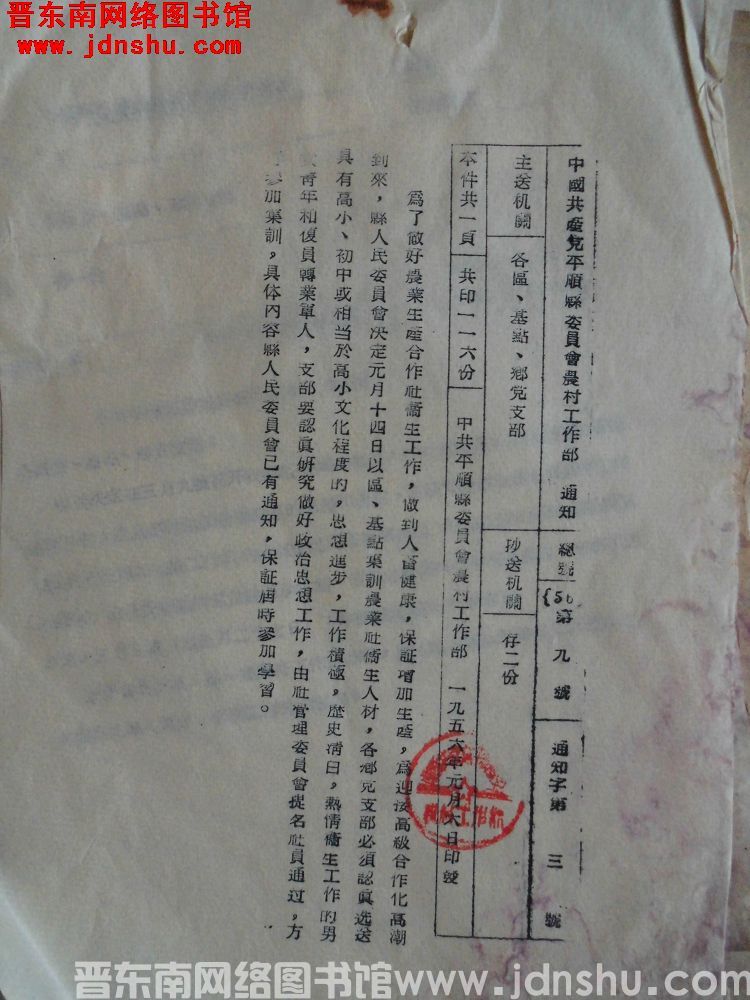 晋东南网络图书馆
www.jdnshu.com
中國共產党平順縣委員會農村工作部 通知 總號 (56 第九號 通知字第 三 號
主送机關 各區、基點、鄉党支部 抄送机關 存二份
本件共一頁 共印一一六份 中共平順縣委員會農村工作部 一九五六年元月六日印發
爲了做好農業生產合作社衛生工作，做到人畜健康，保証增加生產，爲迎接高級合作化高潮
到來，縣人民委員會决定元月十四日以區、基點集訓農業社衛生人材，各鄉党支部必須認眞选送
具有高小、初中或相当於高小文化程度的，思想進步，工作積極，歷史清白，熱情衛生工作的男
青年和復員轉業軍人，支部要認眞研究做好政治思想工作，由社管理委員會提名社員通过，方
參加集訓，具体內容縣人民委員會已有通知，保証屆時參加學習。
農村工作部
晋东南网络图书馆www.jdnshu.com